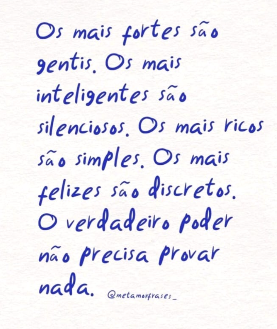 Os mais fortes são
gentis. Os mais
inteligentes são
silenciosos. Os mais ricos
são simples. Os mais
felizes são discretos.
O verdadeiro poder
não precisa provar
nada. @metamorfrases_